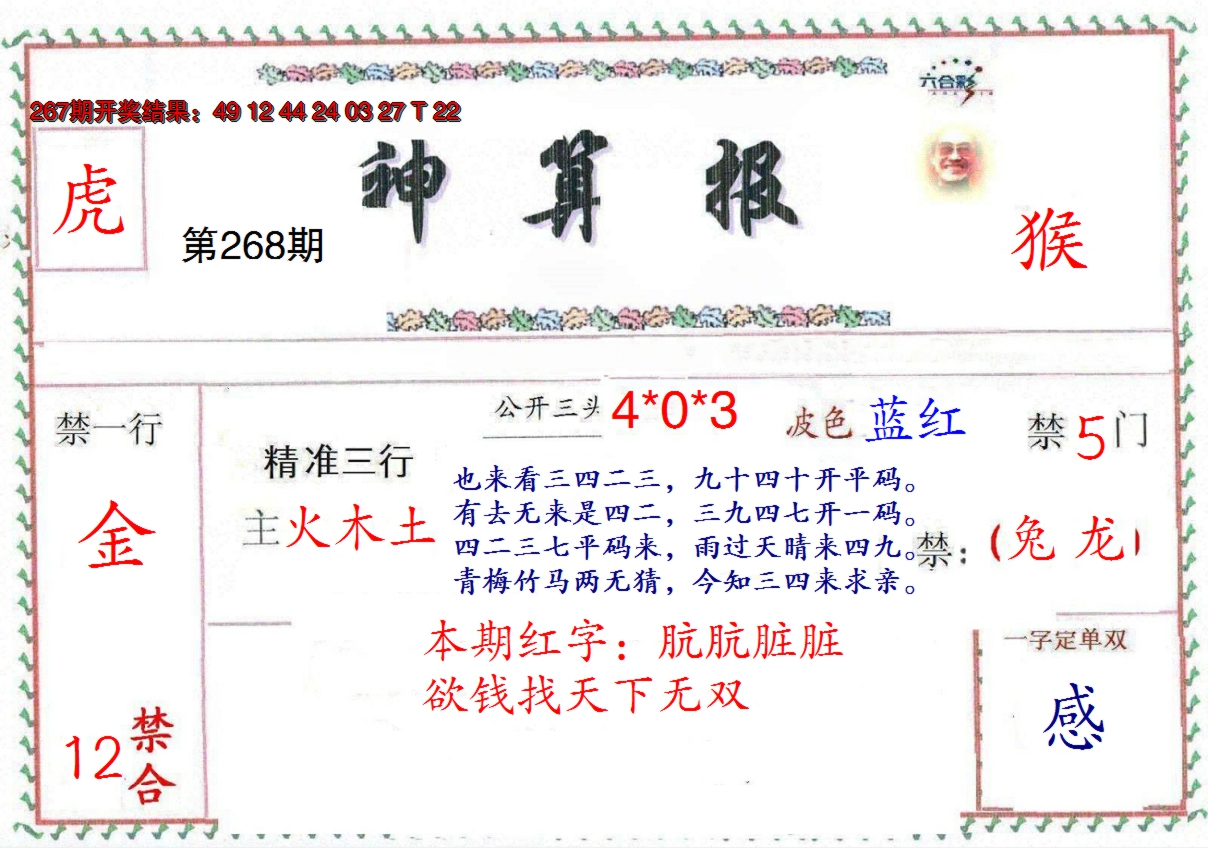 六合彩
267期开奖结果：49 12 44 24 03 27 T 22
虎
神算报
第268期
猴
禁一行
金
12
禁合
公开三头 4*0*3
波色 蓝红
禁5门
精准三行
主火木土
也来看三四二三，九十四十开平码。
有去无来是四二，三九四七开一码。
四二三七平码来，雨过天晴来四九。
青梅竹马两无猜，今知三四来求亲。
禁：(兔 龙)
本期红字：肮肮脏脏
欲钱找天下无双
一字定单双
感